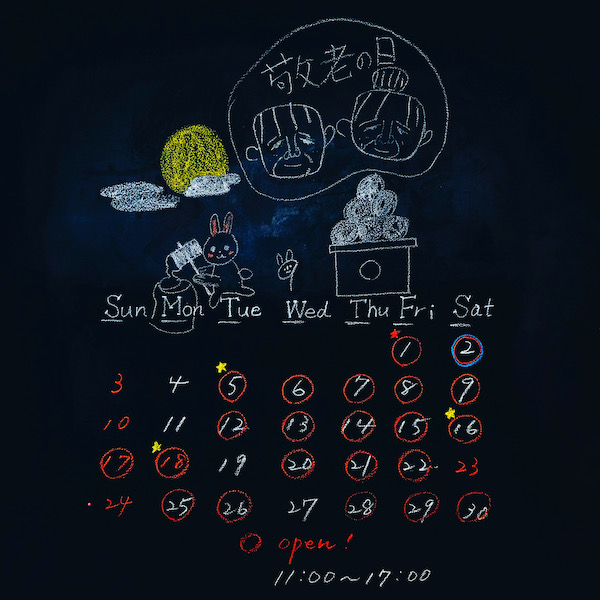 敬老の日
Sun Mon Tue Wed Thu Fri Sat
1 2
3 4 5 6 7 8 9
10 11 12 13 14 15 16
17 18 19 20 21 22 23
24 25 26 27 28 29 30
open!
11:00~17:00